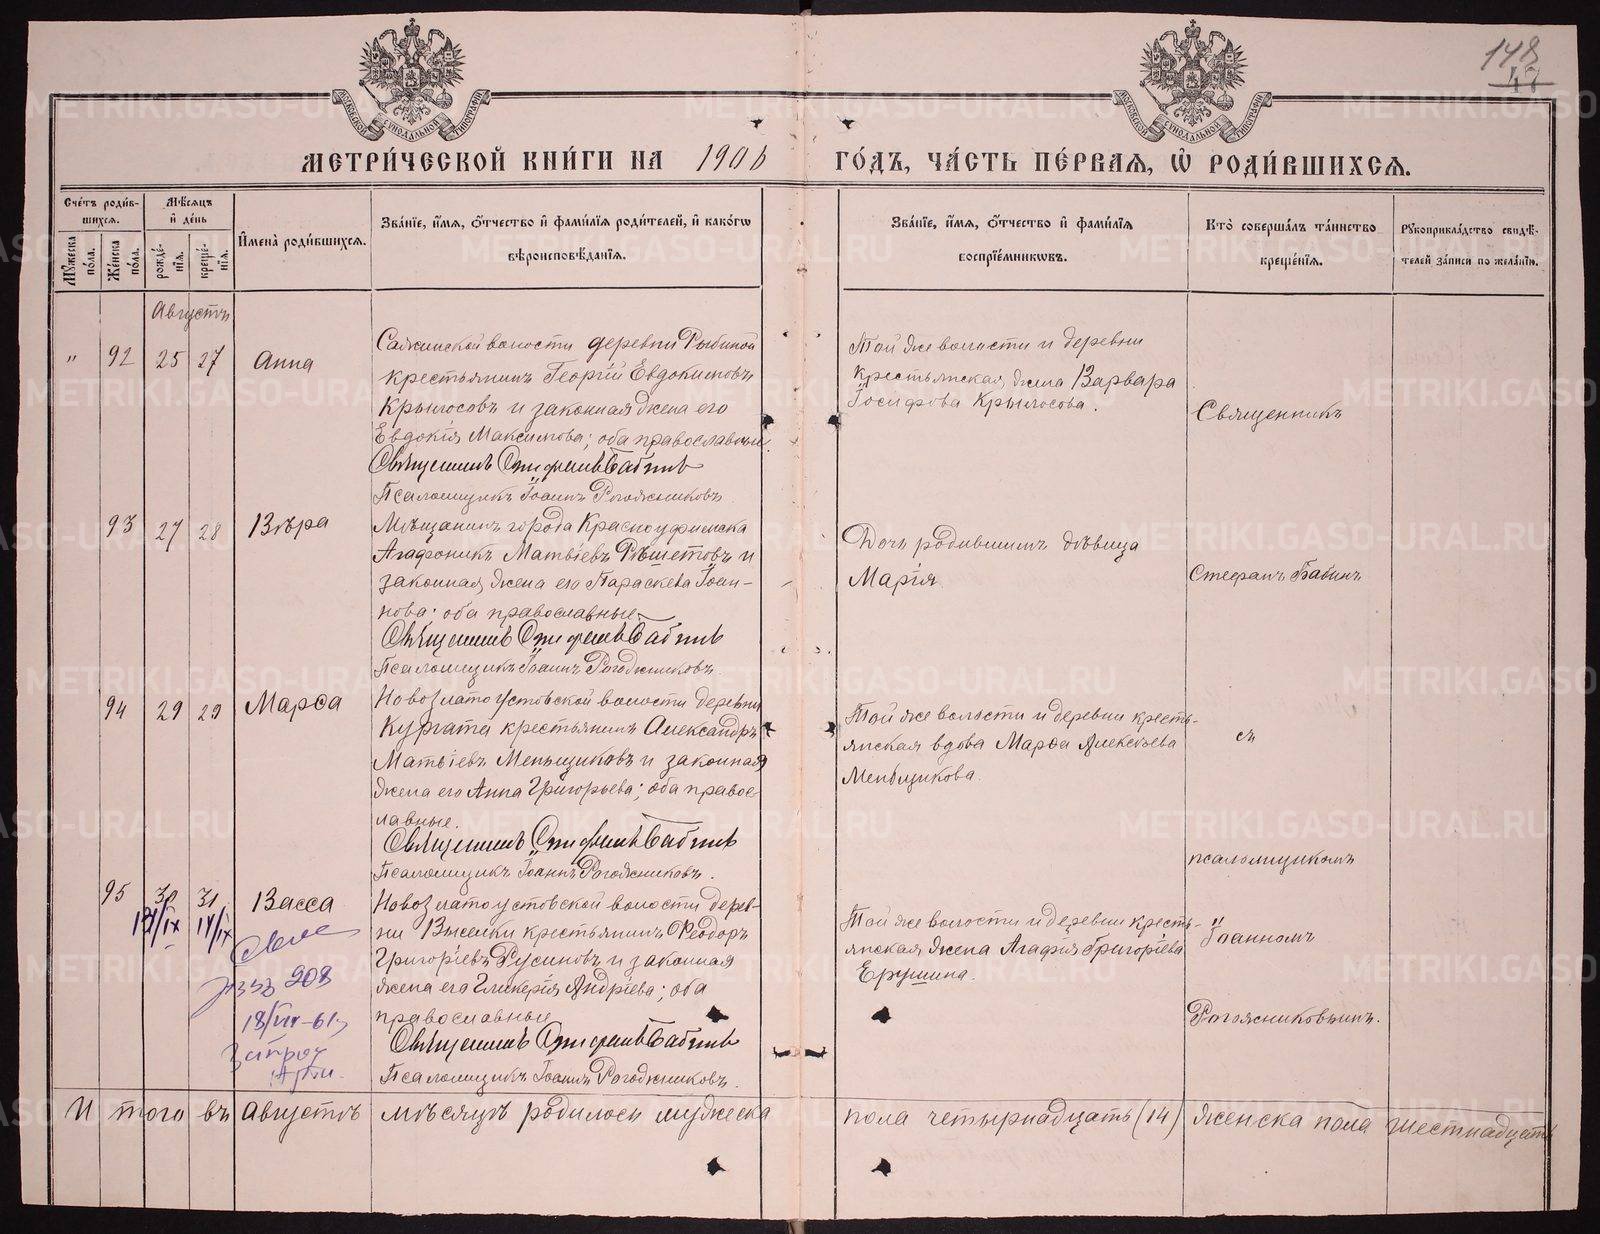 148
47
МОСКОВСКОЙ СѴНОДАЛЬНОЙ ТИПОГРАФІИ
МОСКОВСКОЙ СѴНОДАЛЬНОЙ ТИПОГРАФІИ
МЕТРИ́ЧЕСКОЙ КНИ́ГИ НА 1906 ГО́ДЪ, ЧА́СТЬ ПЕ́РВАЯ, Ѡ҆ РОДИ́ВШИХСЯ.
Сче́тъ роди́в-
шихся.
Мѣ́сяцъ
и҆ де́нь
Му́жеска
по́ла.
Же́нска
по́ла.
рожде́-
нїя.
креще́-
нїя.
И҆мена̀ роди́вшихся.
Зва́нїе, и҆́мя, ѻ҆́тчество и҆ фами́лїя роди́телей, и҆ како́гѡ
вѣроисповѣ́данїя.
Зва́нїе, и҆́мя, ѻ҆́тчество и҆ фами́лїя
воспрїе́мникѡвъ.
Кто̀ соверша́лъ та́инство
креще́нїя.
Рꙋкоприкла́дство свидѣ́-
телей за́писи по жела́нїю.
Августъ
" 92 25 27 Анна
Сажинской волости деревни Рыбиной
крестьянинъ Георгій Евдокимовъ
Крылосовъ и законная жена его
Евдокія Максимова; оба православные.
Священникъ Стефанъ Бабинъ
Псаломщикъ Іоаннъ Рогожниковъ.
Той же волости и деревни
крестьянская жена Варвара
Іосифова Крылосова.
Священникъ
93 27 28 Вѣра
Мѣщанинъ города Красноуфимска
Агафоникъ Матвіевъ Рѣшетовъ и
законная жена его Параскева Іоан-
нова; оба православные.
Священникъ Стефанъ Бабинъ
Псаломщикъ Іоаннъ Рогожниковъ.
Дочь родившимъ дѣвица
Марія.
Стефанъ Бабинъ
94 29 29 Марѳа
Новозлатоустовской волости деревни
Кургата крестьянинъ Александръ
Матвіевъ Меньщиковъ и законная
жена его Анна Григорьева; оба право-
славные.
Священникъ Стефанъ Бабинъ
Псаломщикъ Іоаннъ Рогожниковъ.
Той же волости и деревни кресть-
янская вдова Марѳа Алексѣева
Меньщикова.
съ
псаломщикомъ
95 30 31 Васса
12/IX 14/IX
Новозлатоустовской волости дерев-
ни Выселки крестьянинъ Ѳеодоръ
Григоріевъ Русиновъ и законная
жена его Гликерія Андріева; оба
православные.
Священникъ Стефанъ Бабинъ
Псаломщикъ Іоаннъ Рогожниковъ.
Той же волости и деревни кресть-
янская жена Агафія Григоріева
Ерушина.
Іоанномъ
Рогожниковымъ.
Итого въ Августѣ мѣсяцѣ родилось мужеска пола четырнадцать (14) женска пола шестнадцать
METRIKI.GASO-URAL.RU